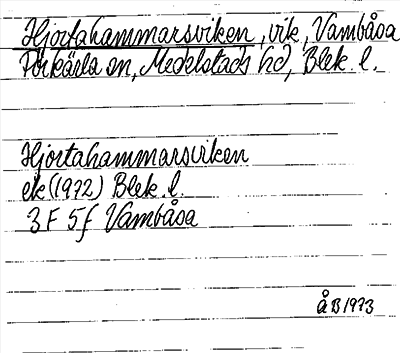 Hjortahammarsviken, vik, Vambåsa
Förkärla sn, Medelstads hd, Blek. l.
Hjortahammarsviken
ek (1972) Blek. l.
3 F 5f Vambåsa
ÅB 1973